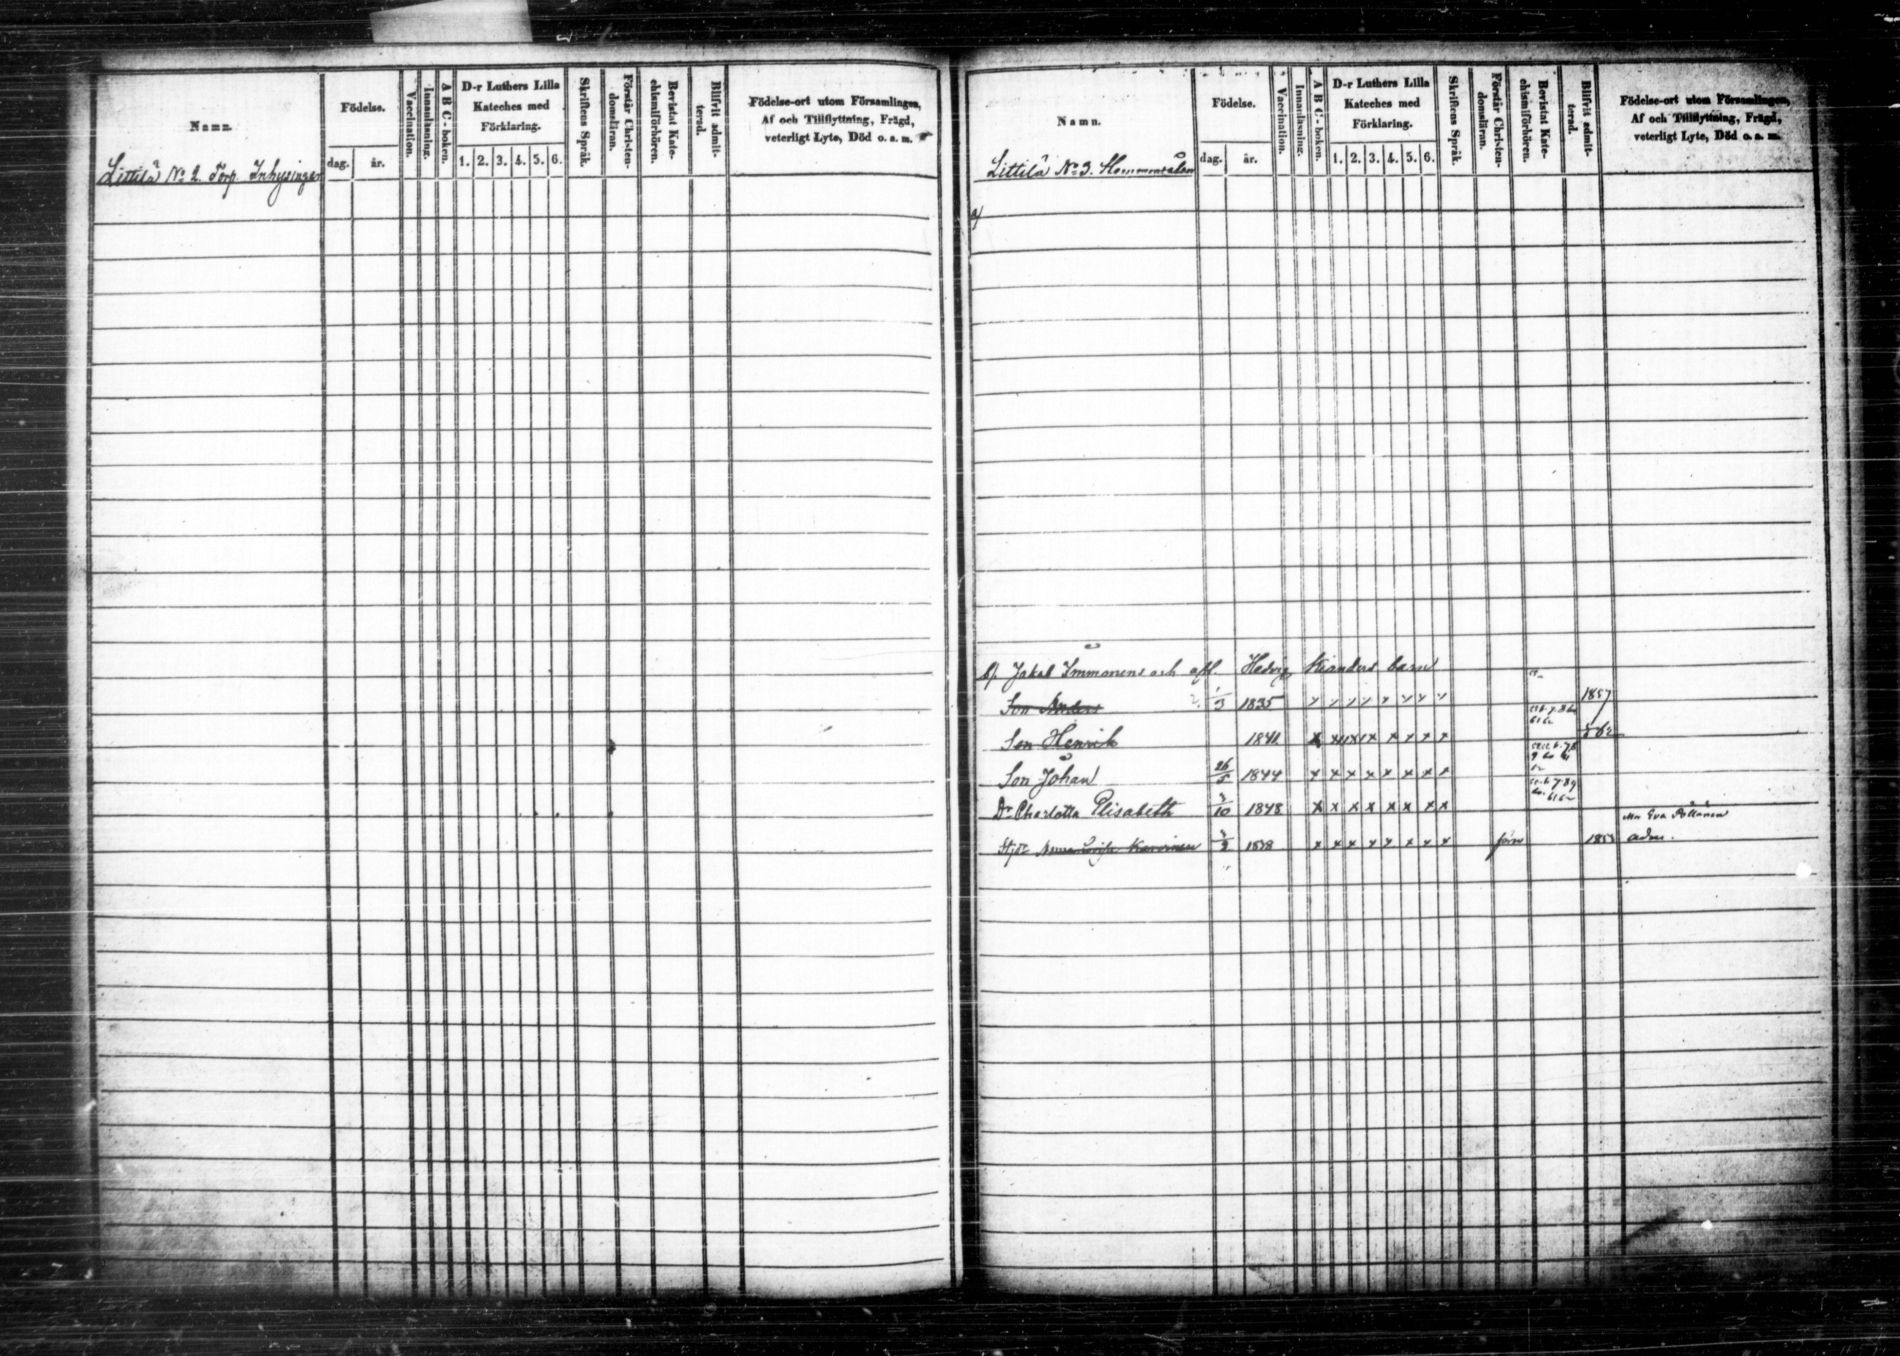 Namn.
Födelse.
dag. år.
Vaccination.
Innanläsning.
A B C-boken.
D-r Luthers Lilla
Kateches med
Förklaring.
1. 2. 3. 4. 5. 6.
Skriftens Språk.
Förstår Christen-
domsläran.
Bevistat Kate-
chismiförhören.
Blifvit admit-
terad.
Födelse-ort utom Församlingen,
Af och Tillflyttning, Frägd,
veterligt Lyte, Död o. a. m.
Littilä No 2. Torp. Inhysingar
Namn.
Födelse.
dag. år.
Vaccination.
Innanläsning.
A B C-boken.
D-r Luthers Lilla
Kateches med
Förklaring.
1. 2. 3. 4. 5. 6.
Skriftens Språk.
Förstår Christen-
domsläran.
Bevistat Kate-
chismiförhören.
Blifvit admit-
terad.
Födelse-ort utom Församlingen,
Af och Tillflyttning, Frägd,
veterligt Lyte, Död o. a. m.
Littilä No 3.
a/
b/. Jakob Immonens och afl. Hedvig Kianders barn
Son Anders 1835 1857
Son Henrik
Son Johan 26/5 1844
Dr Charlotta Elisabeth 1848
Karvinen 1838 1853